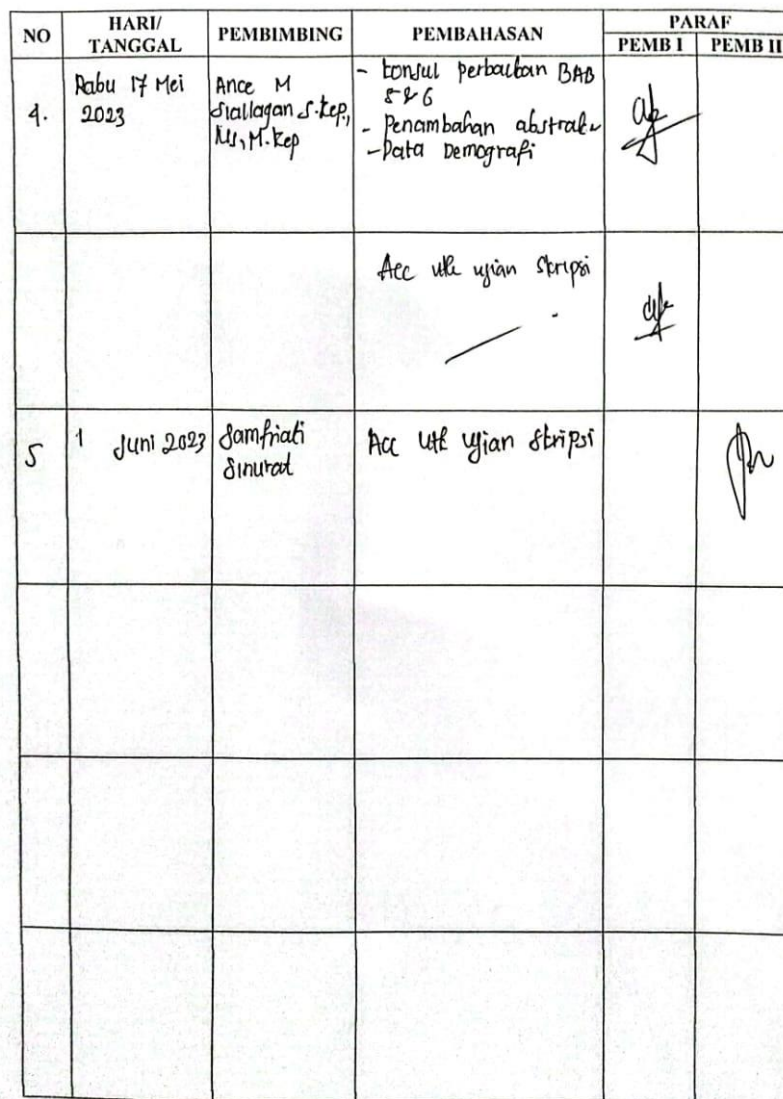 NO HARI/ TANGGAL PEMBIMBING PEMBAHASAN PARAF
PEMB I PEMB II
4. Rabu 17 Mei 2023
Ance M
Siallagan S.Kep,
Ns, M.Kep
- konsul perbaikan BAB
5 & 6
- Penambahan abstrak
- Data Demografi
Acc utk ujian skripsi
5 1 Juni 2023
Samfriati
Sinurat
Acc utk ujian skripsi